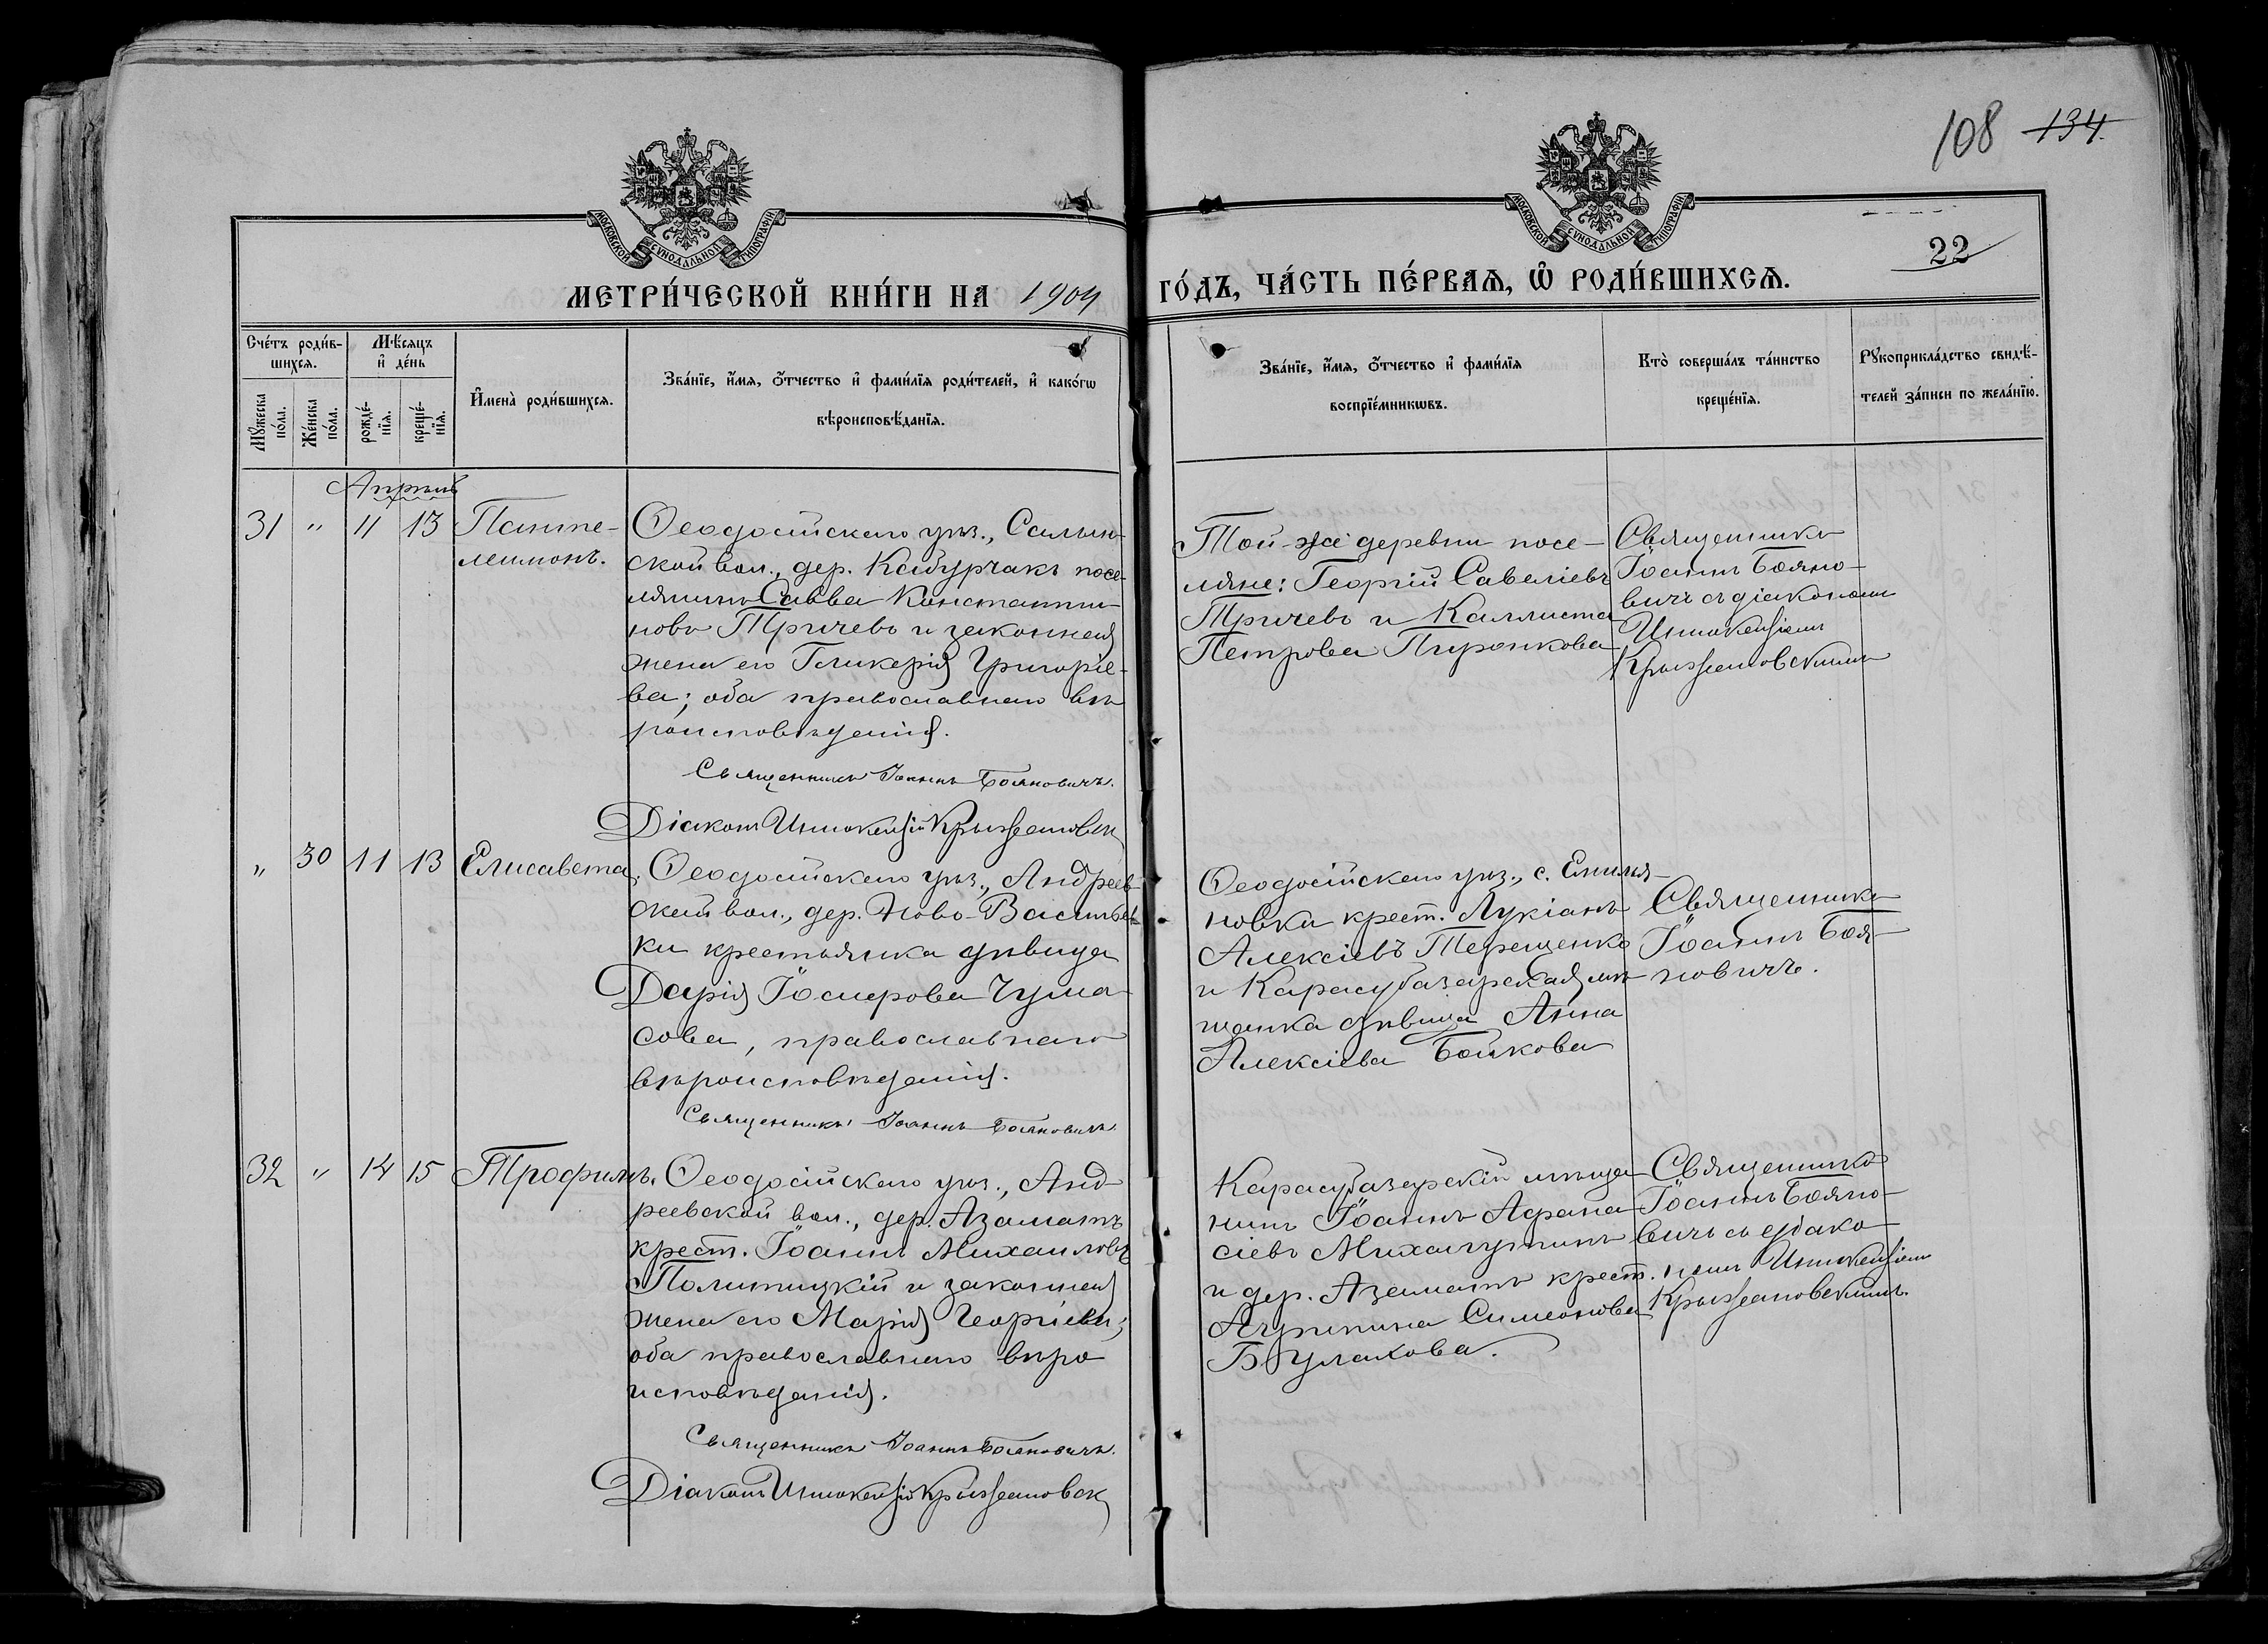 108 134.
МОСКОВСКОЙ СѴНОДАЛЬНОЙ ТИПОГРАФІИ
МОСКОВСКОЙ СѴНОДАЛЬНОЙ ТИПОГРАФІИ
22
МЕТРИ́ЧЕСКОЙ КНИ́ГИ НА 1904 ГО́ДЪ, ЧА́СТЬ ПЕ́РВАѦ, Ѡ҆ РОДИ́ВШИХСѦ.
Сче́тъ роди́в-
шихсѧ.
Мꙋ́жеска по́ла.
Же́нска по́ла.
Мѣ́сѧцъ
и҆ де́нь
рожде́-нїѧ.
креще́-нїѧ.
И҆мена̀ роди́вшихсѧ.
Зва́нїе, и҆́мѧ, ѻ҆́тчество и҆ фами́лїѧ роди́телей, и҆ како́гѡ
вѣроисповѣ́данїѧ.
Зва́нїе, и҆́мѧ, ѻ҆́тчество и҆ фами́лїѧ
воспрїе́мникѡвъ.
Кто̀ соверша́лъ та́инство
креще́нїѧ.
Рꙋкоприкла́дство свидѣ́-
телей за́писи по жела́нїю.
Апрѣль
31 " 11 13 Панте-
леимонъ.
Ѳеодосійскаго уѣз., Салын-
ской вол., дер. Кабурчакъ посе-
лянинъ Савва Константи-
новъ Тричевъ и законная
жена его Гликерія Григоріе-
ва; оба православнаго вѣ
роисповѣданія.
Священникъ Іоаннъ Бояновичъ.
Діаконъ Иннокентій Крыжановск
Той-же деревни посе-
ляне: Георгій Савеліевъ
Тричевъ и Каллиста
Петрова Пиронкова
Священникъ
Іоаннъ Бояно-
вичъ съ діакономъ
Иннокентіемъ
Крыжановскимъ
" 30 11 13 Елисавета.
Ѳеодосійскаго уѣз., Андреев-
ской вол., дер. Ново-Васильев-
ки крестьянка дѣвица
Дарія Іосифова Чума-
сова, православнаго
вѣроисповѣданія.
Священникъ Іоаннъ Бояновичъ.
Ѳеодосійскаго уѣз., с. Емилья-
новки крест. Лукіанъ
Алексіевъ Терещенко
и Карасубазарская мѣ-
щанка дѣвица Анна
Алексіева Бойкова
Священникъ
Іоаннъ Боя-
новичъ.
32 " 14 15 Трофимъ.
Ѳеодосійскаго уѣз., Анд-
реевской вол., дер. Азаматъ
крест. Іоаннъ Михаиловъ
Политицкій и законная
жена его Марія Георгіева;
оба православнаго вѣро
исповѣданія.
Священникъ Іоаннъ Бояновичъ.
Діаконъ Иннокентій Крыжановск
Карасубазарскій мѣща-
нинъ Іоаннъ Афана-
сіевъ Михалутинъ
и дер. Азаматъ крест.
Агрипина Симеонова
Булахова.
Священникъ
Іоаннъ Бояно-
вичъ съ діако-
номъ Иннокентіемъ
Крыжановскимъ.